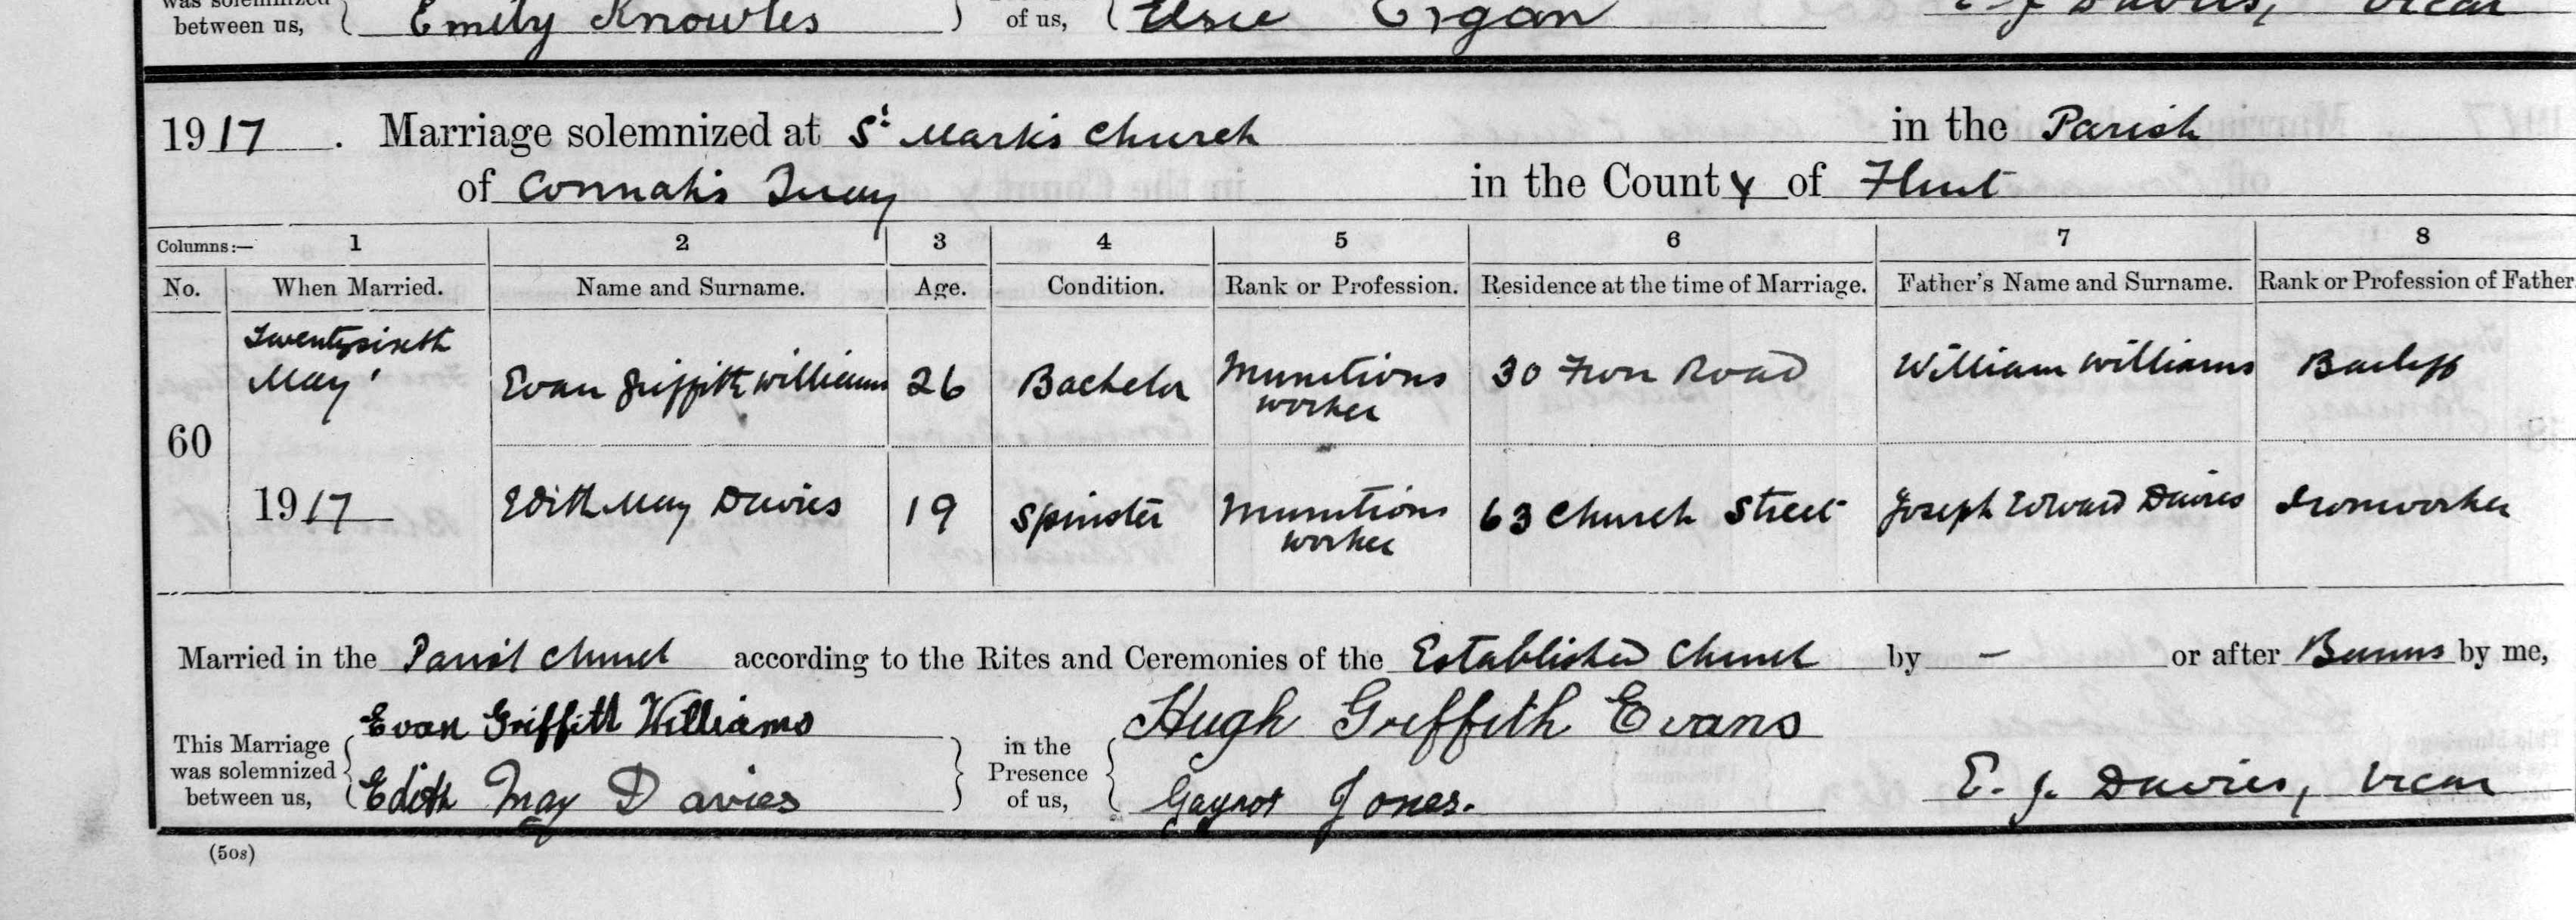 was solemnized
between us, Emily Knowles of us, Elsie Organ E. J. Davies, Vicar
1917. Marriage solemnized at St Mark's Church in the Parish
of Connah's Quay in the County of Flint
Columns:— 1 2 3 4 5 6 7 8
No. When Married. Name and Surname. Age. Condition. Rank or Profession. Residence at the time of Marriage. Father's Name and Surname. Rank or Profession of Father
Twentysixth
May Evan Griffith Williams 26 Bachelor Munitions 30 Fron Road William Williams Bailiff
worker
60
1917 Edith May Davies 19 Spinster Munitions 63 Church Street Joseph Edward Davies Ironworker
worker
Married in the Parish Church according to the Rites and Ceremonies of the Established Church by – or after Banns by me,
Evan Griffith Williams Hugh Griffith Evans
This Marriage was solemnized between us, in the Presence of us,
Edith May Davies Gaynor Jones. E. J. Davies, Vicar
(50s)